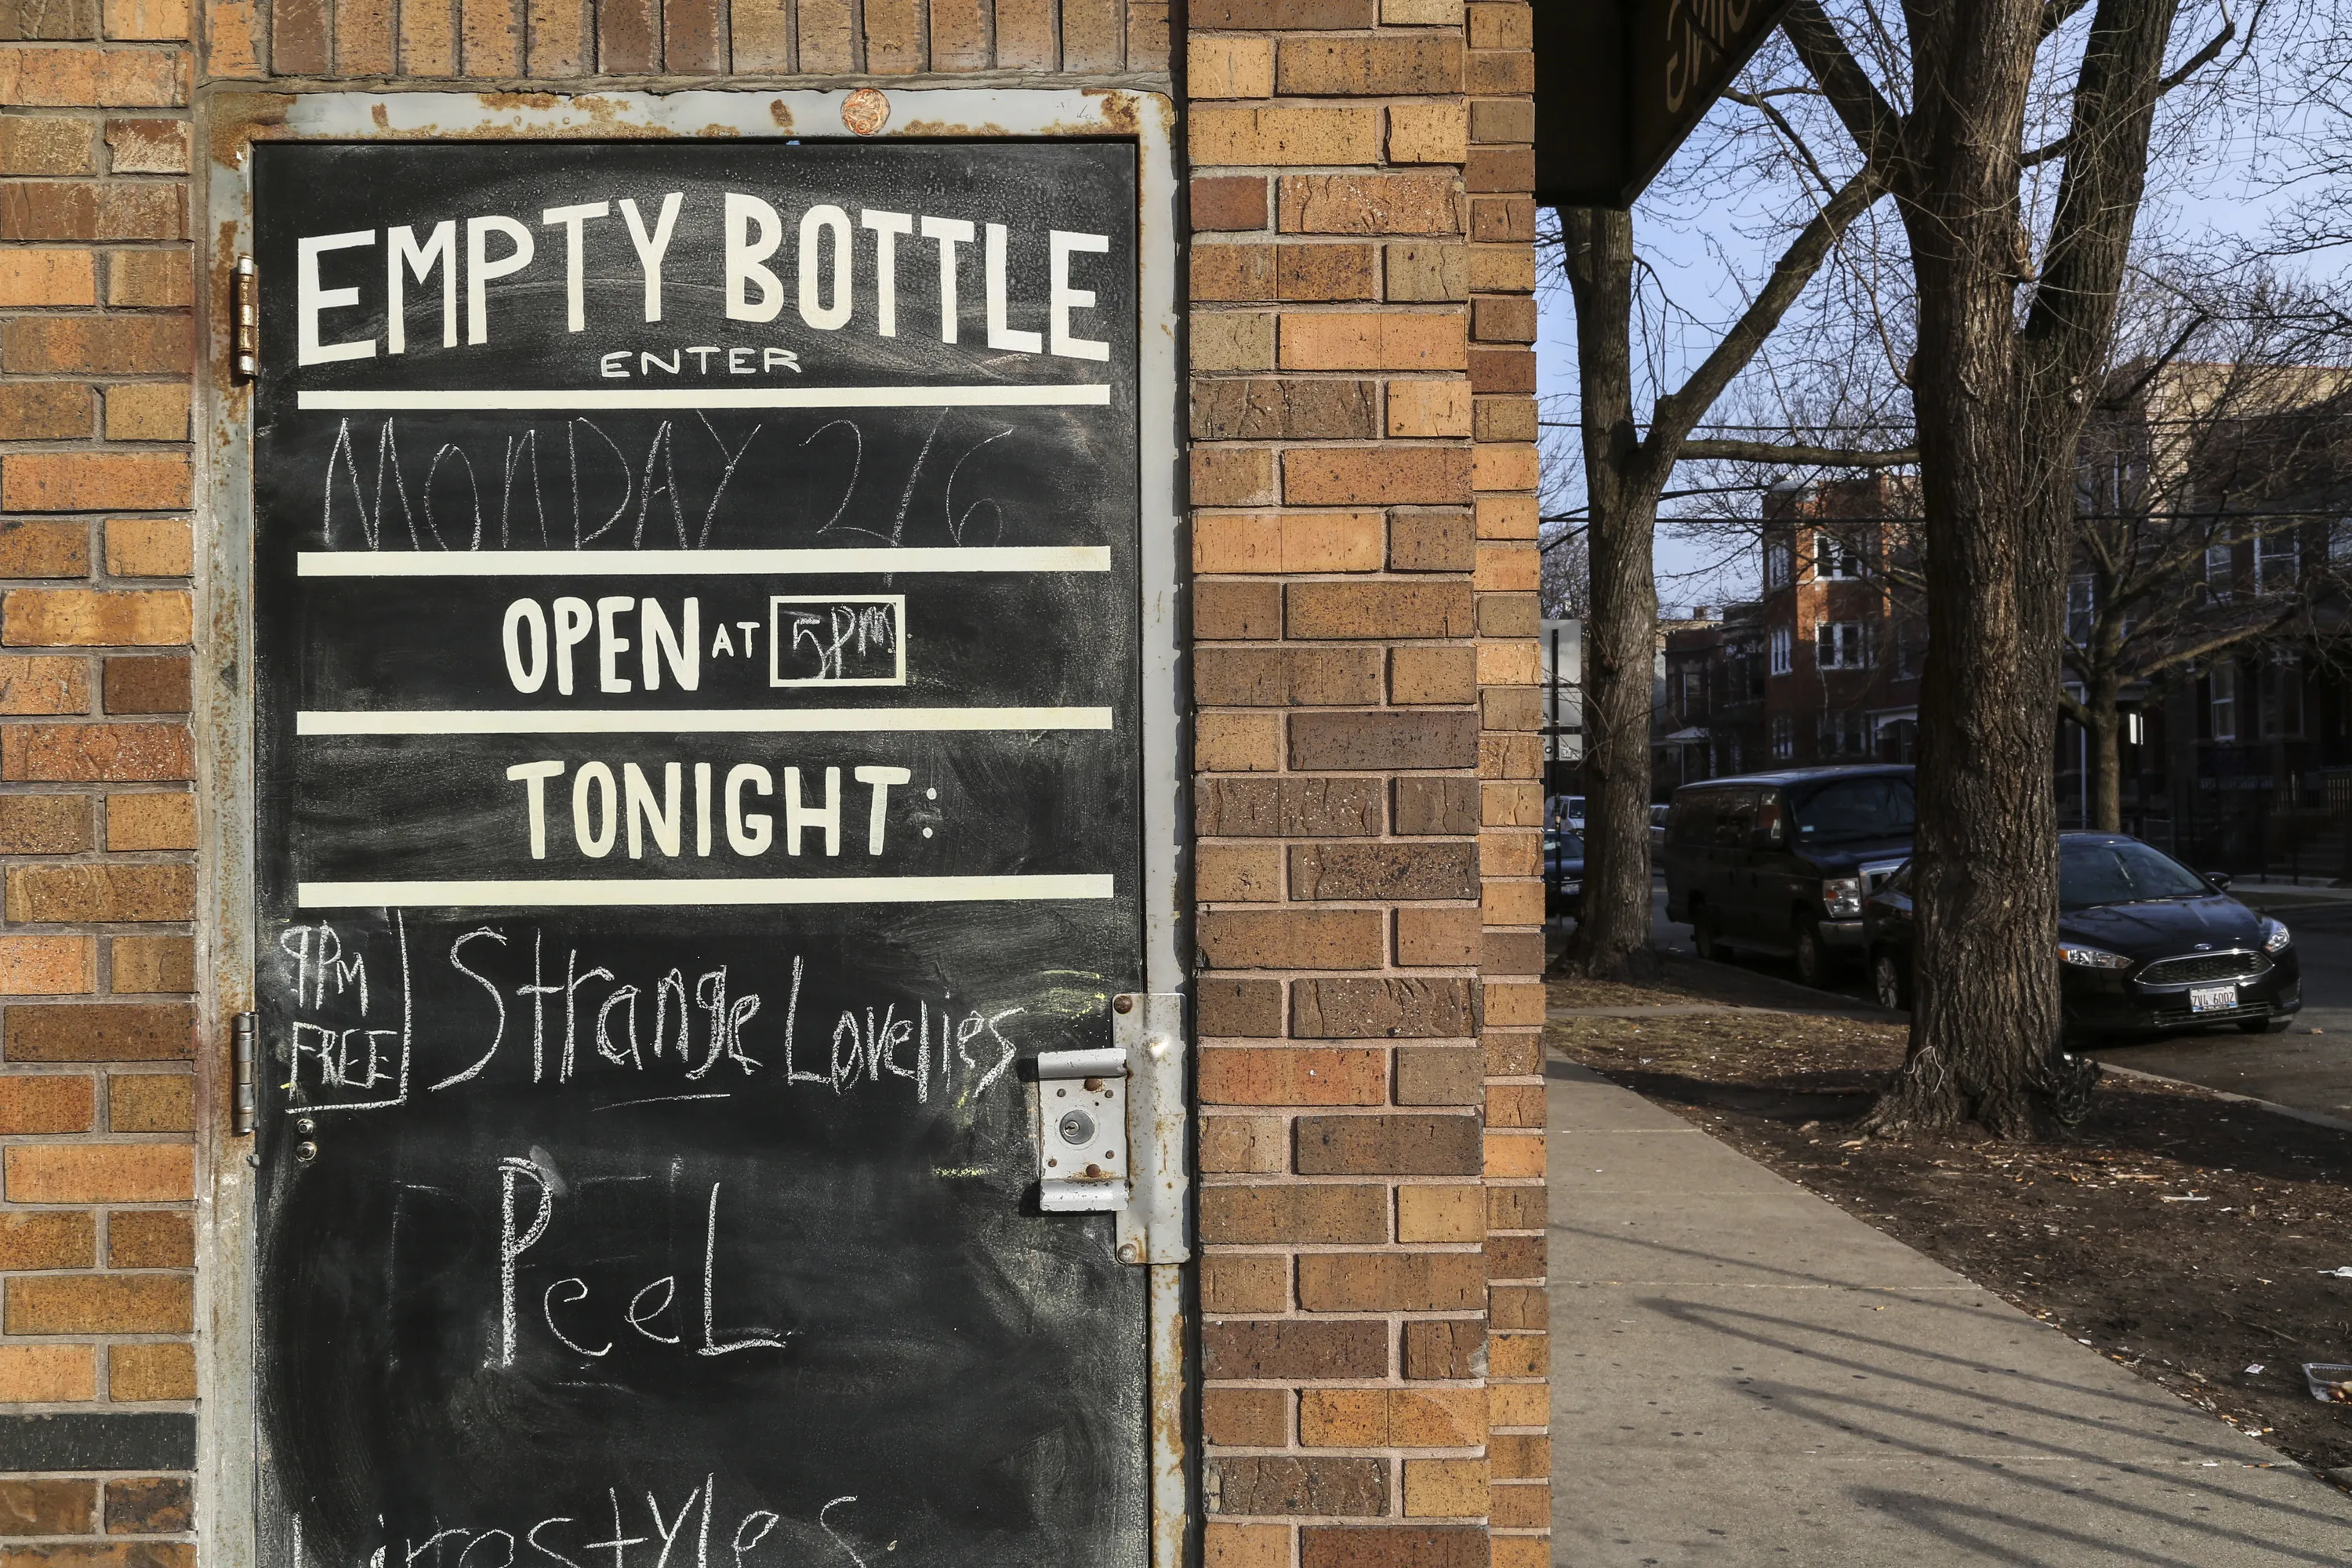 EMPTY BOTTLE
ENTER
MONDAY 2/6
OPEN AT 5PM
TONIGHT:
9PM
FREE
Strange Lovelies
PeeL
Lifestyles
ZV4 6002